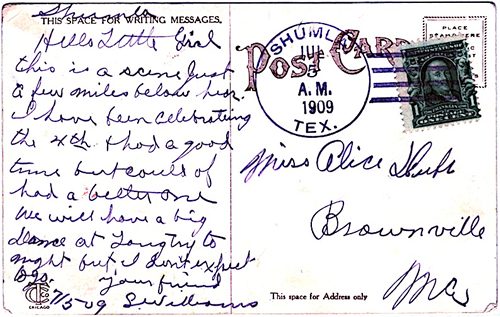 THIS SPACE FOR WRITING MESSAGES.
Hello Little Girl
this is a scene Just
a few miles below hear.
I have been celebrating
the 4th & had a good
time but could of
had a better one
We will have a big
dance at Langtry to
night but I don't expect
to go. your friend
7/5-09 S. Williams
CHICAGO
POST CARD
SHUMLA
JUL
5
A.M.
1909
TEX.
PLACE
STAMP HERE
Miss Alice
Brownville
This space for Address only